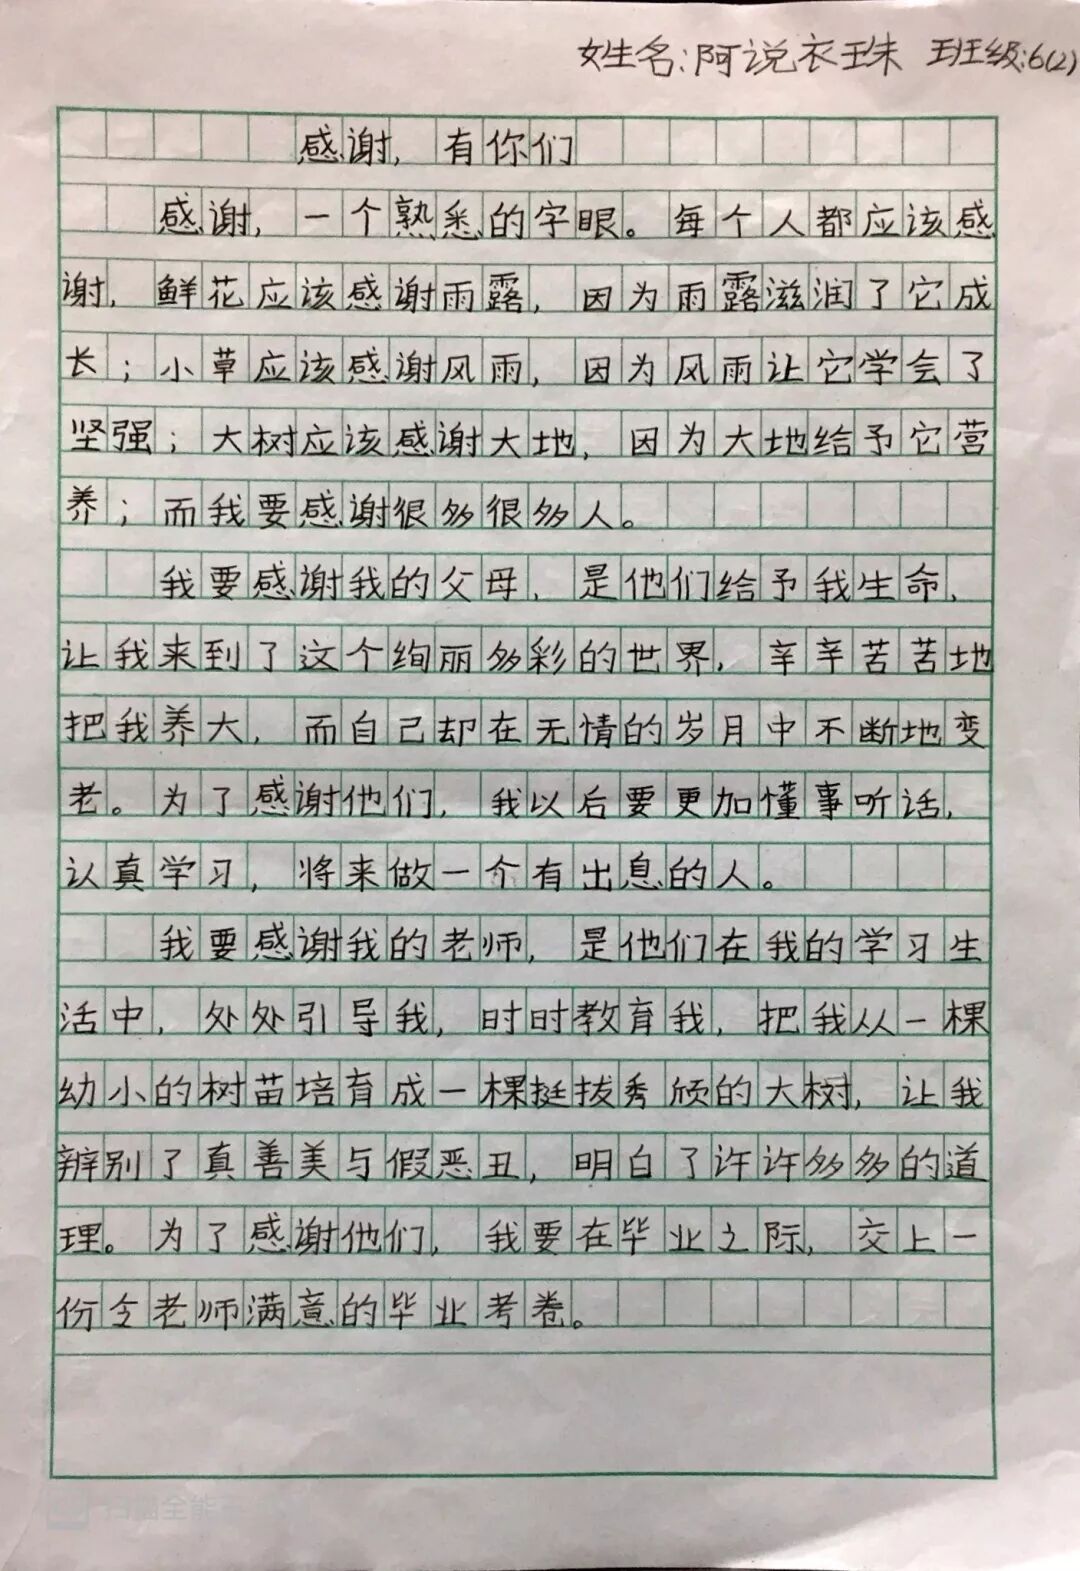 姓名:阿说衣珠 班级:6(2)
感谢,有你们
感谢,一个熟悉的字眼。每个人都应该感
谢,鲜花应该感谢雨露,因为雨露滋润了它成
长;小草应该感谢风雨,因为风雨让它学会了
坚强;大树应该感谢大地,因为大地给予它营
养;而我要感谢很多很多人。
我要感谢我的父母,是他们给予我生命,
让我来到了这个绚丽多彩的世界,辛辛苦苦地
把我养大,而自己却在无情的岁月中不断地变
老。为了感谢他们,我以后要更加懂事听话,
认真学习,将来做一个有出息的人。
我要感谢我的老师,是他们在我的学习生
活中,处处引导我,时时教育我,把我从一棵
幼小的树苗培育成一棵挺拔秀颀的大树,让我
辨别了真善美与假恶丑,明白了许许多多的道
理。为了感谢他们,我要在毕业之际,交上一
份令老师满意的毕业考卷。
扫描全能